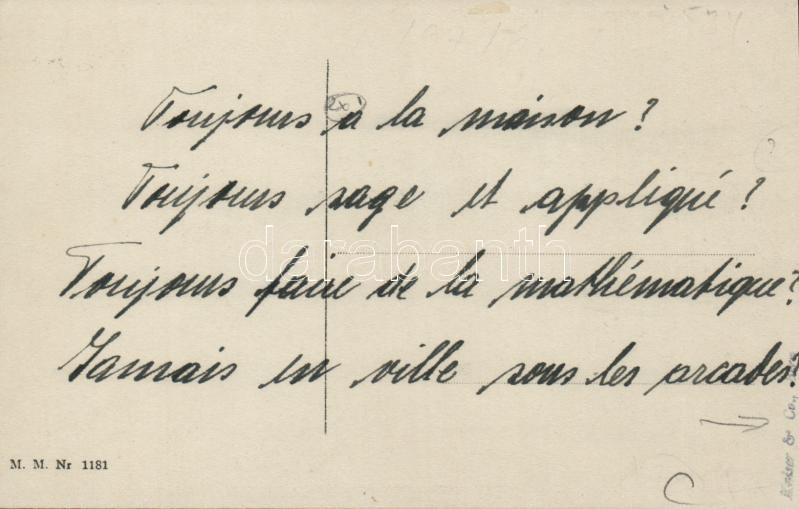 Toujours a la maison?
Toujours sage et appliqué?
Toujours faire de la mathématique?
Jamais en ville sous les arcades.
M. M. Nr 1181
darabanth.com